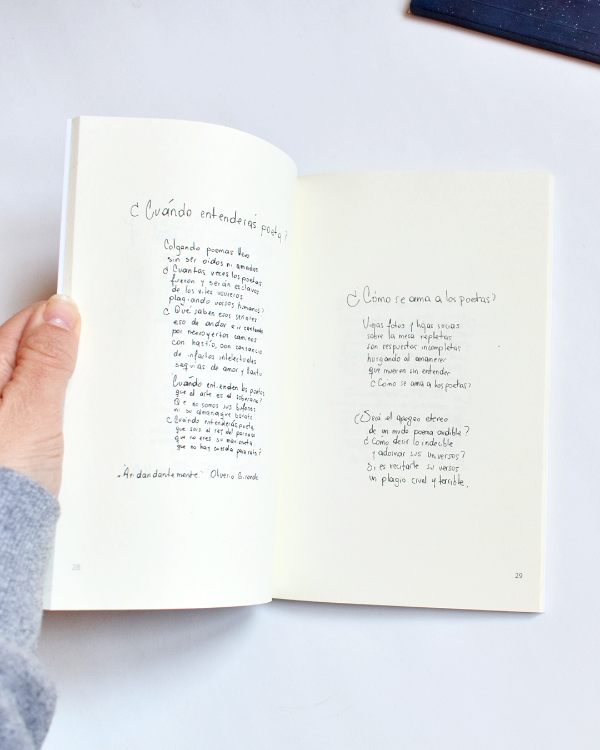 ¿Cuándo entenderás poeta?
Colgando poemas llevo
sin ser oidos ni amados
¿Cuantas veces los poetas
fueron y serán esclavos
de los viles usureros
plagiando versos humanos?
¿Qué saben esos señores
eso de andar e ir cantando
por negros yertos caminos
con hastío, con cansancio
de infartos intelectuales
sequías de amor y llanto
Cuándo entienden los poetas
que el arte es el soberano?
Q e no somos sus bufones
ni su almanaque barato
¿Cuándo entenderás poeta
que sois el rey del parnaso
que no eres su marioneta
que no hay cuerda para rato?
"Andandantemente." Oliverio Girondo
28
¿Cómo se ama a los poetas?
Viejas fotos y hojas sucias
sobre la mesa repletas
son respuestas incompletas
hurgando al amanecer
que mueren sin entender
¿Como se ama a los poetas?
¿Será el apogeo etereo
de un mudo poema audible?
¿Cómo decir lo indecible
y adornar sus universos?
Si es recitarle su versos
un plagio cruel y terrible.
29